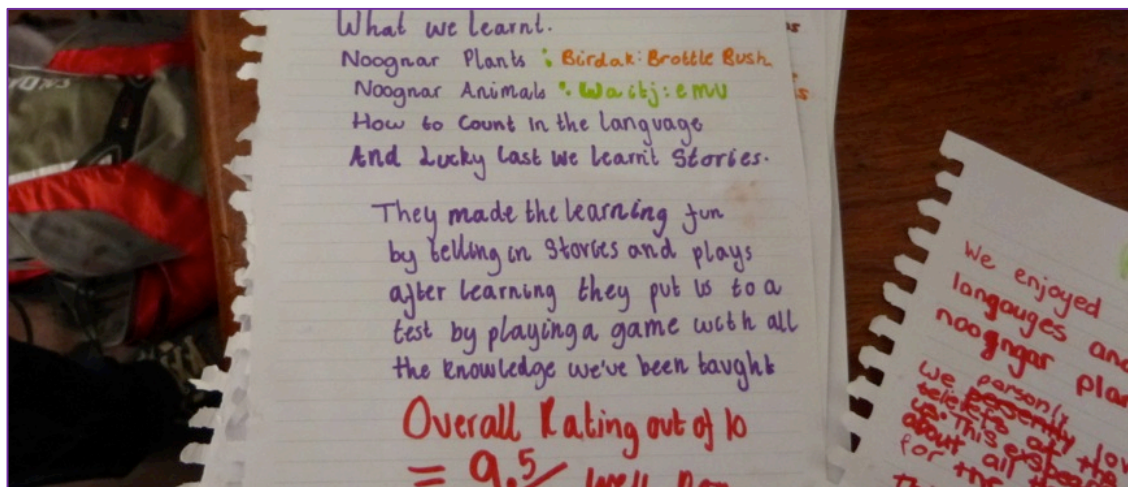 What we learnt.
Noognar Plants : Birdak: Brottle Bush
Noognar Animals : Waitj: emu
How to Count in the language
And Lucky Last we learnt Stories.
They made the learning fun
by telling in Stories and plays
after learning they put us to a
test by playing a game with all
the knowledge we've been taught
Overall Rating out of 10
= 9.5/ Well
We enjoyed
langauges and
noogngar
We personly
about all
for the